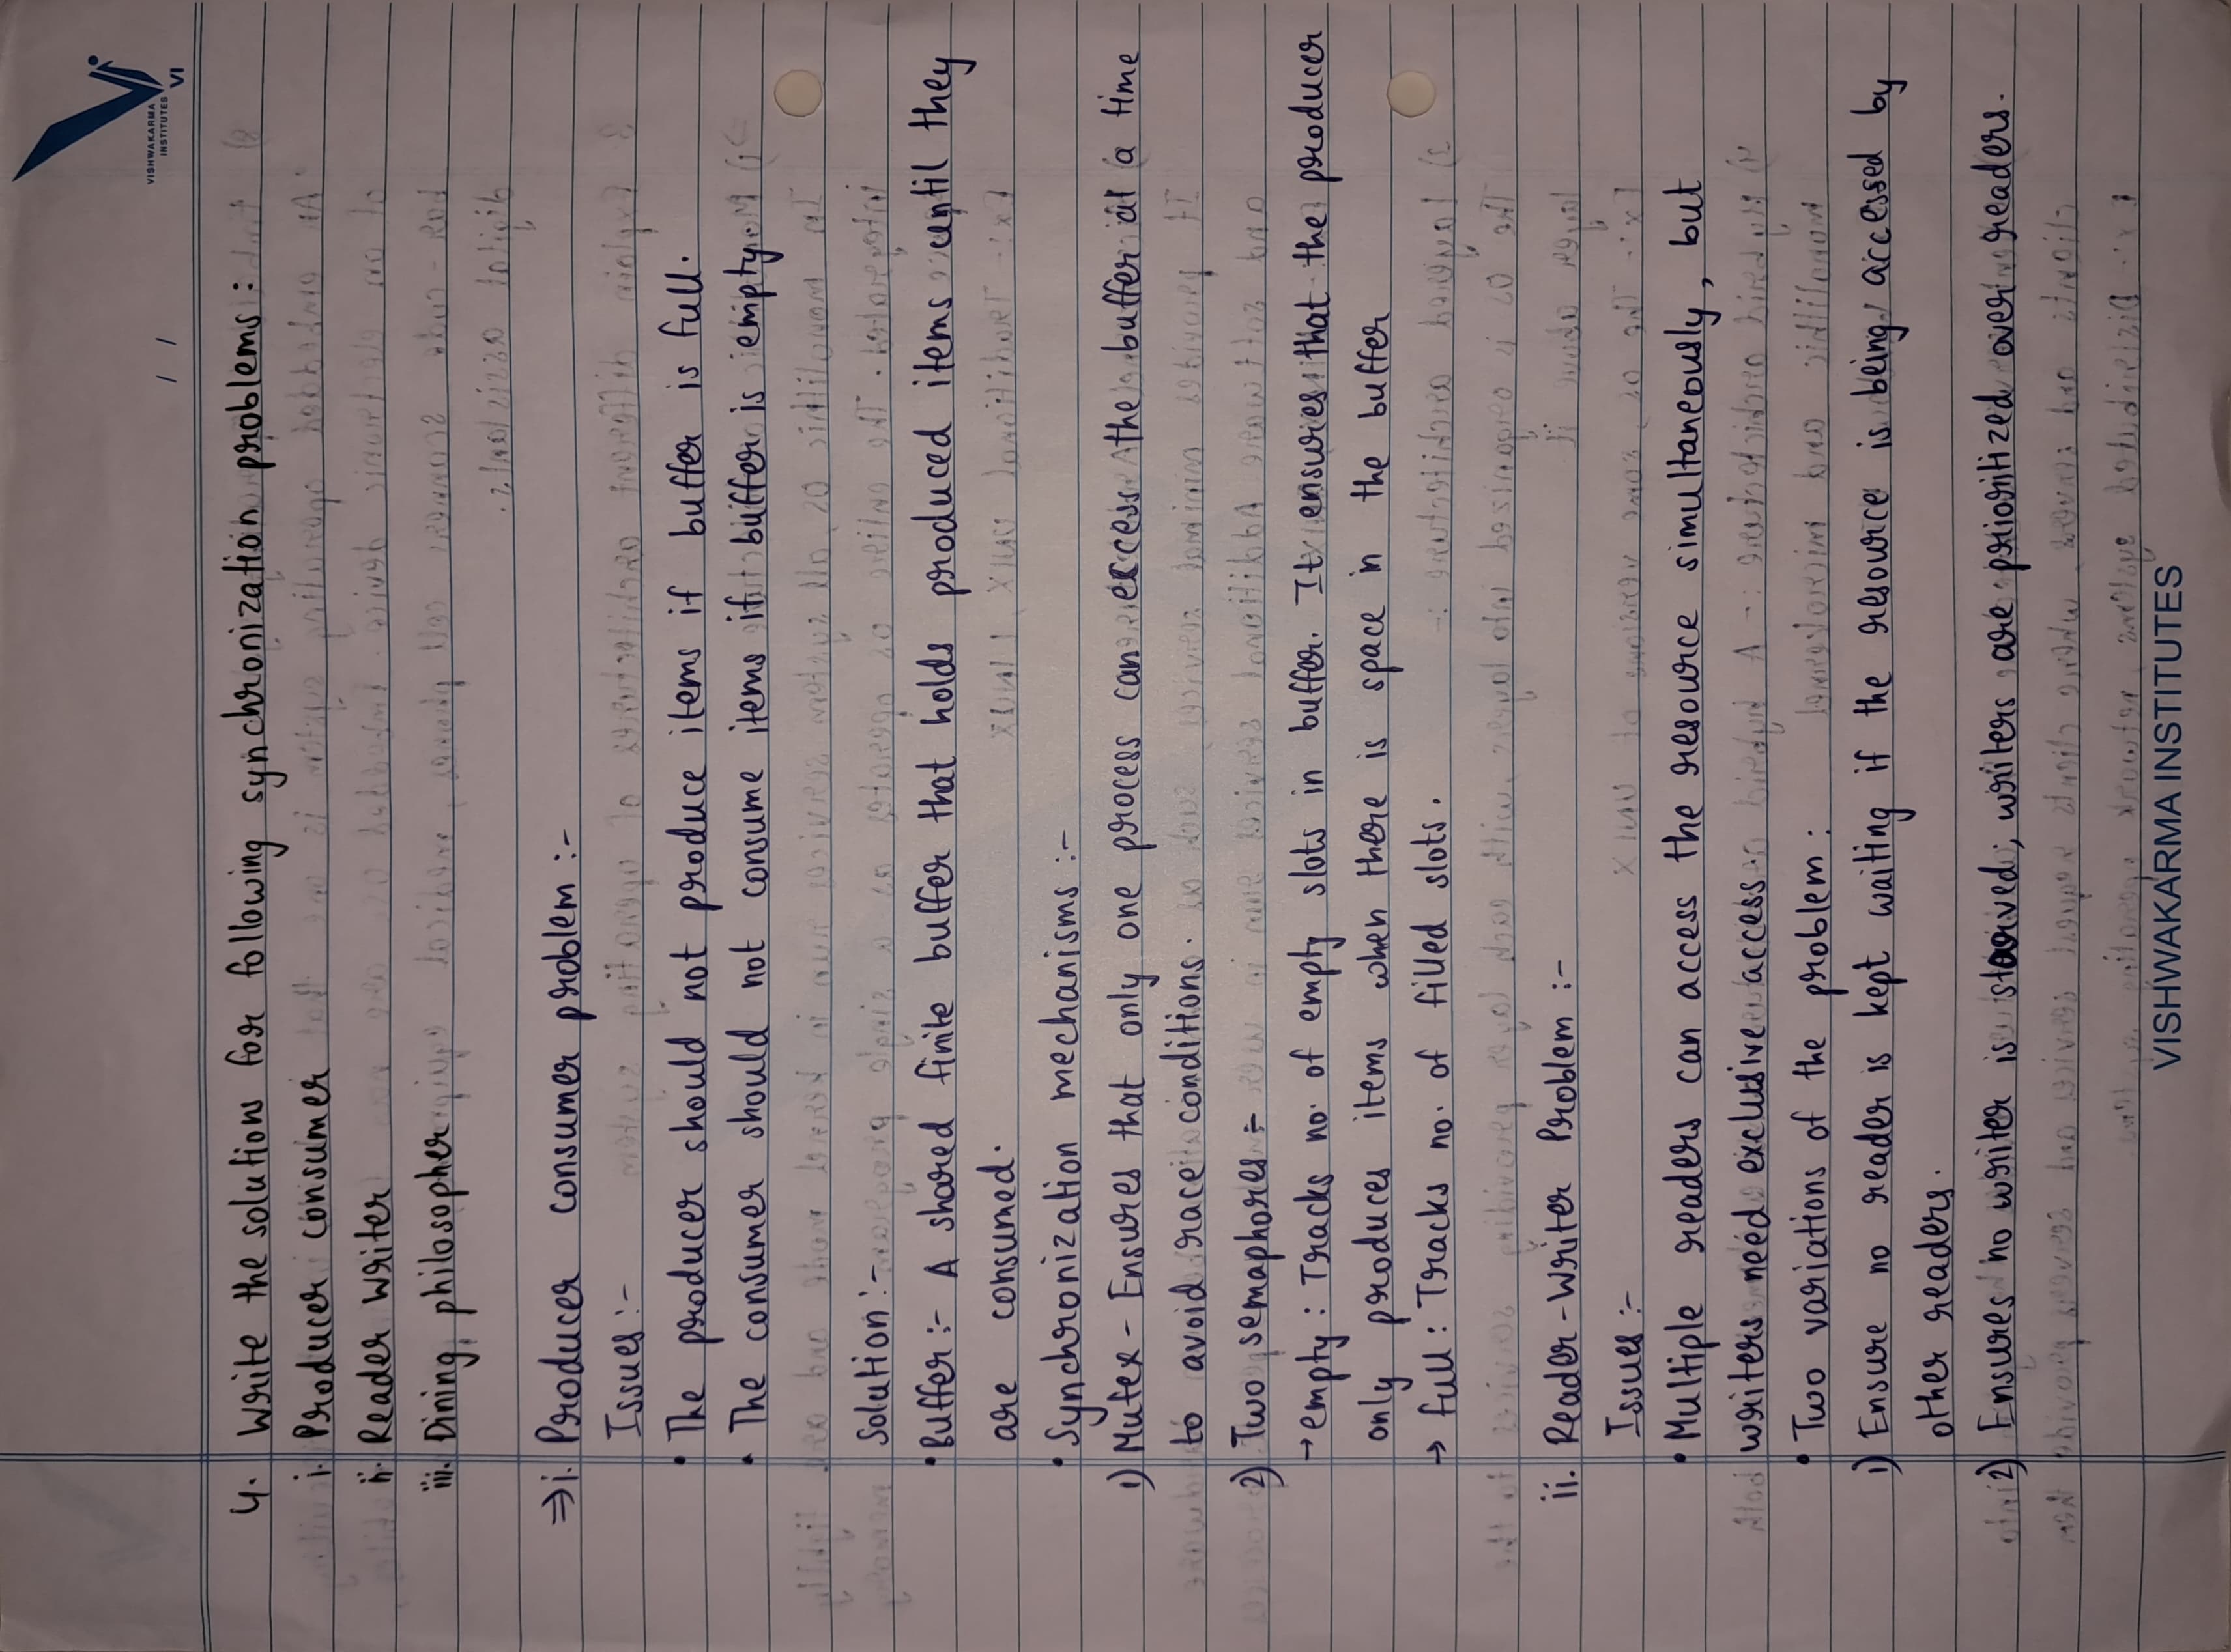 VISHWAKARMA
INSTITUTES
VI
/ /
4. Write the solutions for following synchronization problems :
i. Producer consumer
ii. Reader writer
iii. Dining philosopher
⇒ i. Producer consumer problem :-
Issues :-
• The producer should not produce items if buffer is full.
• The consumer should not consume items if buffer is empty.
Solution :-
• Buffer :- A shared finite buffer that holds produced items until they
are consumed.
• Synchronization mechanisms :-
1) Mutex - Ensures that only one process can excess the buffer at a time
to avoid race conditions.
2) Two semaphores :-
→ empty : Tracks no. of empty slots in buffer. It ensures that the producer
only produces items when there is space in the buffer
→ full : Tracks no. of filled slots.
ii. Reader-Writer Problem :-
Issues :-
• Multiple readers can access the resource simultaneously, but
writers need exclusive access.
• Two variations of the problem :
1) Ensure no reader is kept waiting if the resource is being accessed by
other readers.
2) Ensures no writer is starved; writers are prioritized over readers.
VISHWAKARMA INSTITUTES